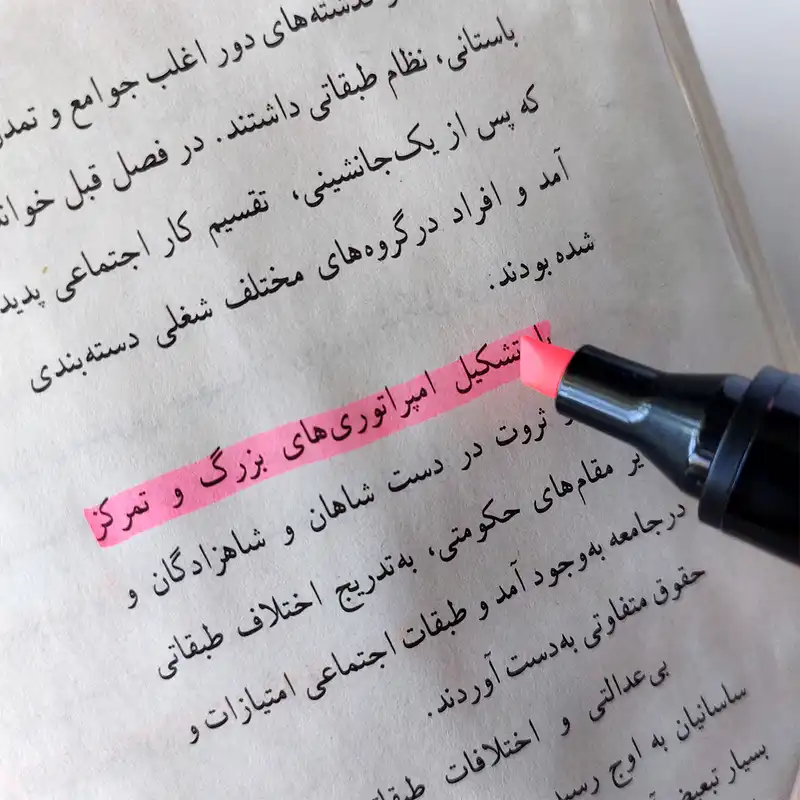 گذشته‌های دور اغلب جوامع و
باستانی، نظام طبقاتی داشتند. در فصل قبل
که پس از یک‌جانشینی، تقسیم کار اجتماعی پدید
آمد و افراد در گروه‌های مختلف شغلی دسته‌بندی
شده بودند:
با تشکیل امپراتوری‌های بزرگ و تمرکز
ثروت در دست شاهان و شاهزادگان و
مقام‌های حکومتی، به‌تدریج اختلاف طبقاتی
در جامعه به‌وجود آمد و طبقات اجتماعی امتیازات و
حقوق متفاوتی به‌دست آوردند.
بی‌عدالتی و اختلافات
ساسانیان به اوج
بسیار تبعیض